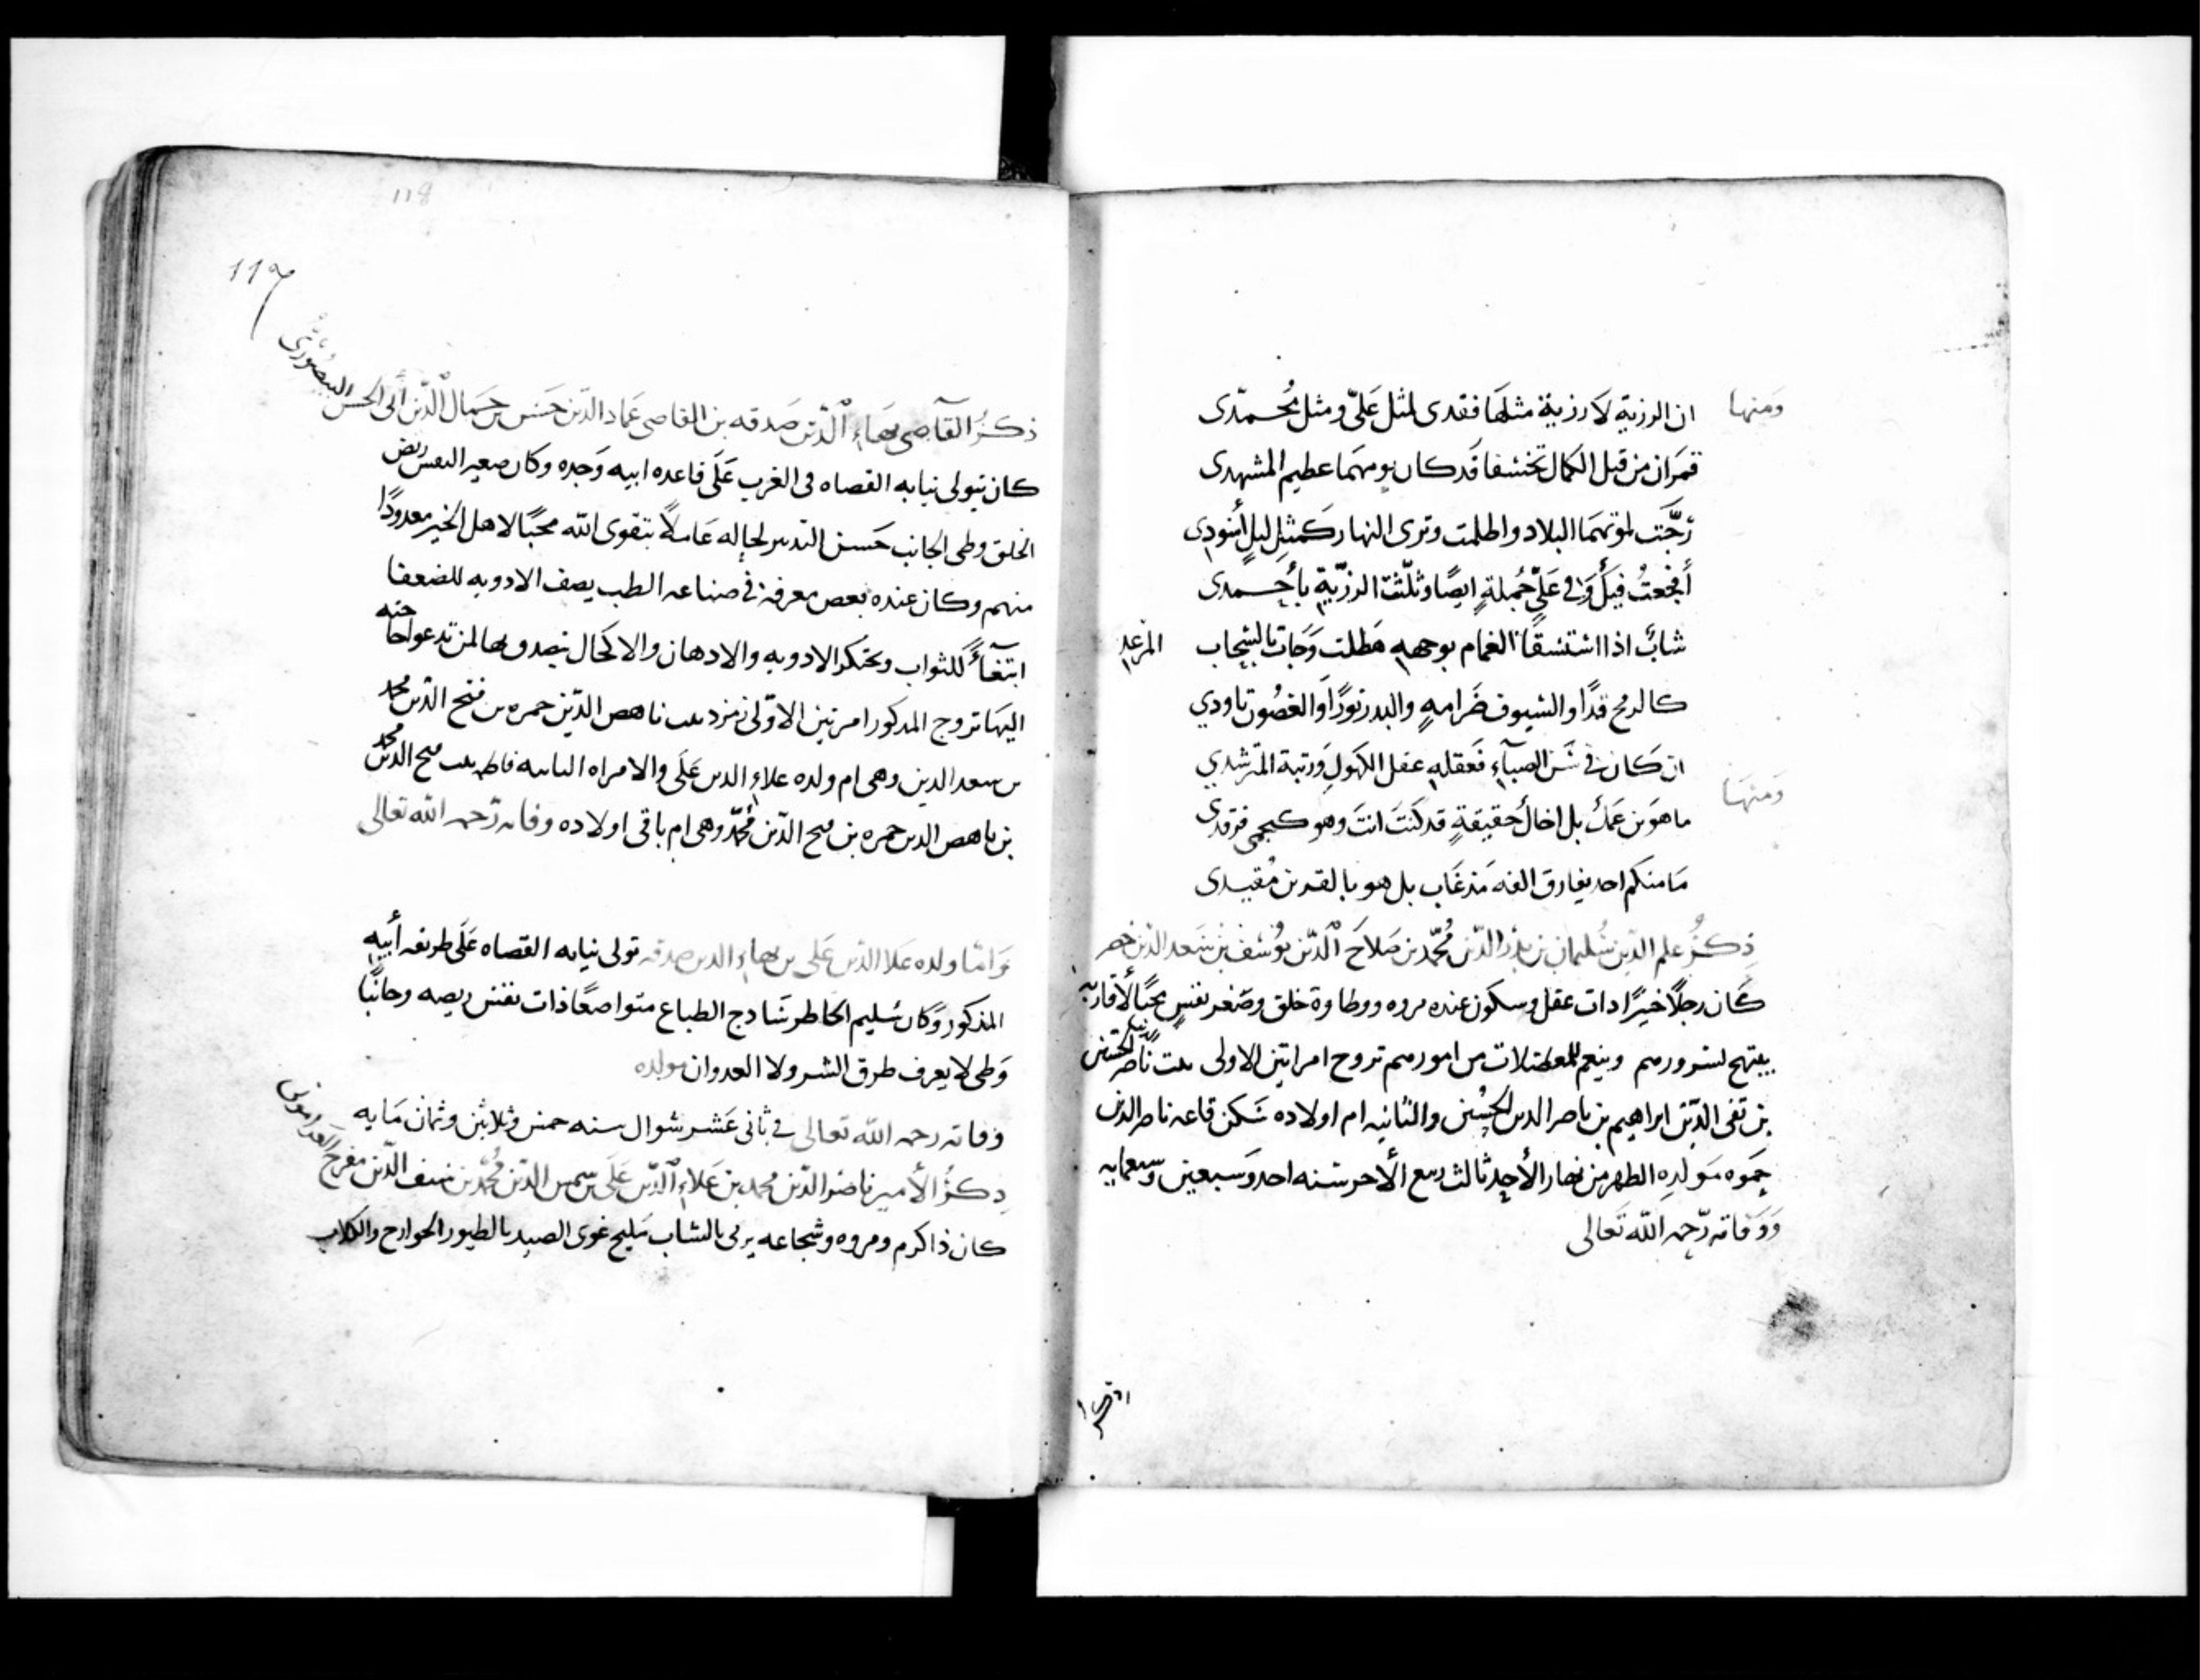 ومنها
ان الرزية لا رزية مثلها فقدى لمثل علىّ ومثل محمّدى
قمران من قبل الكمال تخسفا قد كان يومهما عظيم المشهدى
رجّت لموتهما البلاد واظلمت وترى النهار كمثل ليلٍ أسودى
أفجعتُ فيك وفى علىٍّ جُملةٍ ايضًا وثلّثت الرزيّة بأحمدى
شابٌ اذا استسقا الغمام بوجهه هطلت وجات بالسحاب المرعد
كالرمح قدًا والسيوف ضرامهٍ والبدر نورًا والغصون تاودي
ومنها
ان كان فى سن الصباء فعقله عقل الكهول ورتبة المترشدي
ما هو بن عمك بل اخالُ حقيقةٍ قد كنت انت وهو كنجمى فرقدى
ما منكم احد يفارق الفه مذ غاب بل هو بالقد بن مقيدى
ذكر علم الدّين سُليمان بن بدر الدّين مُحمّد بن صلاح الدّين يوسف بن سعد الدّين خضر
كان رجلًا خيرًا ذات عقل وسكون عنده مروه ووطاوة خلق وصغر نفسٍ محبًا لأقاربه
يبتهج لسرورهم وينعم للمعضلات من امورهم تزوج امراتين الاولى بنت ناصر الدين الحسين
بن تقى الدّين ابراهيم بن ناصر الدين الحُسين والثانيه ام اولاده سكن قاعه ناصر الدين
حموه مولده الظهر من نهار الأحد ثالث ربيع الأخر سنه احد وسبعين وسبعمايه
ووفاته رحمه الله تعالى
118
117
ذكر القاضى بهاء الدّين صدقه بن القاضى عماد الدّين حسن بن جمال الدّين أبى الحسن البيصورى
كان يتولى نيابه القضاه فى الغرب على قاعده ابيه وجده وكان صغير النفس ريض
الخلق وطى الجانب حسن التدبير لحاله عاملاً بتقوى الله محبًا لاهل الخير معدودًا
منهم وكان عنده بعض معرفة فى صناعه الطب يصف الادويه للضعفا
ابتغاءً للثواب ويحتكر الادويه والادهان والاكحال يتصدق بها لمن تدعو حاجته
اليها تزوج المذكور امرتين الاولى زمرد بنت ناهض الدّين حمزه بن فتح الدّين محمد
بن سعد الدين وهى ام ولده علاء الدين على والامراه الثانيه فاطمه بنت فتح الدين محمد
بن ناهض الدين حمزه بن فتح الدّين محمّد وهى ام باقى اولاده وفاته رحمه الله تعالى
وامّا ولده علا الدّين على بن بهاء الدين صدقه تولى نيابه القضاه على طريقه أبيه
المذكور وكان سليم الخاطر سادج الطباع متواضعًا ذات نفس ريضه وجانبًا
وطى لا يعرف طرق الشر ولا العدوان مولده
وفاته رحمه الله تعالى فى ثانى عشر شوال سنه خمس وثلاثين وثمان مايه
ذكر الأمير ناصر الدّين محمد بن علاء الدّين على بن شمس الدّين مُحمّد بن سيف الدّين مفرج العرامونى
كان ذا كرم ومروه وشجاعه يرمى بالنشاب مليح غوى الصيد بالطيور الجوارح والكلاب